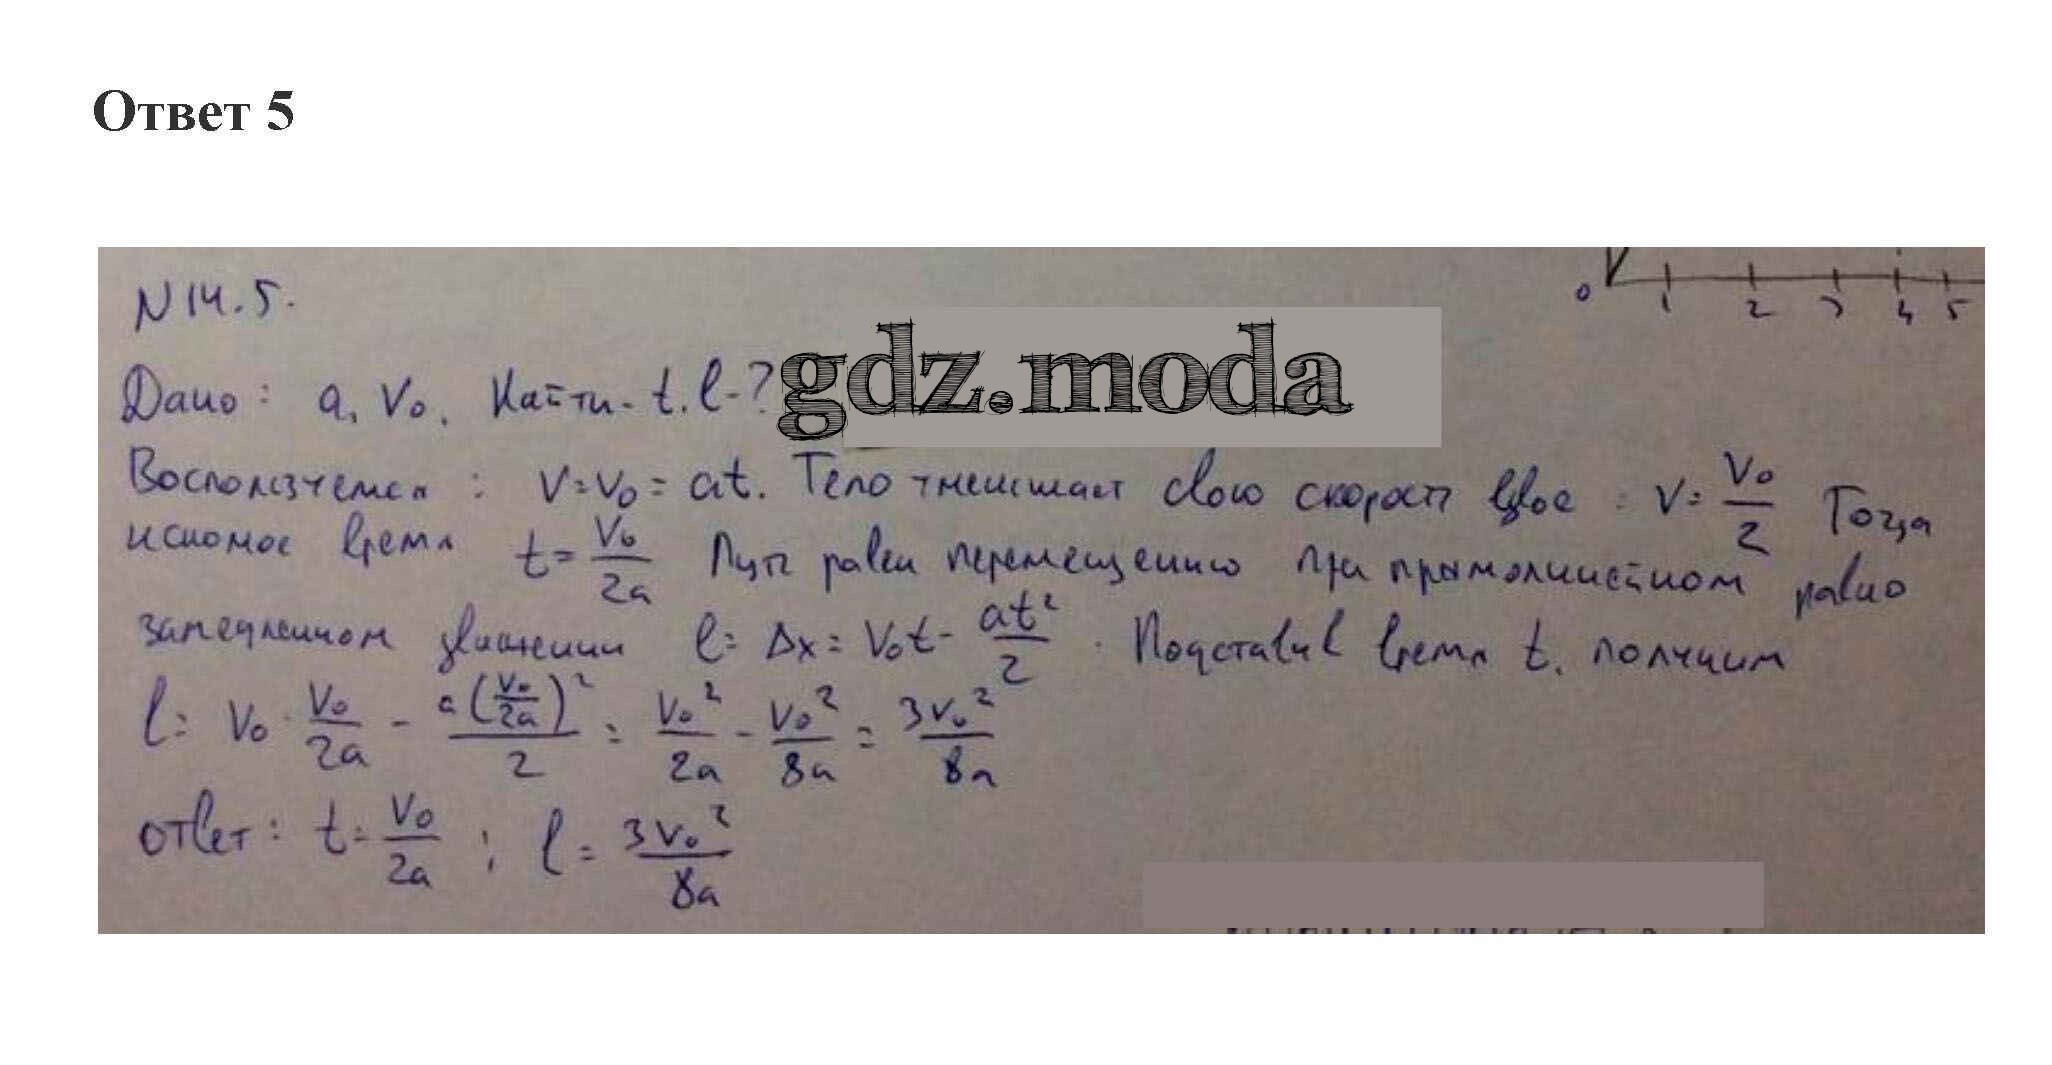 Ответ 5
0 1 2 3 4 5
N 14.5.
gdz.moda
Дано: a, V₀. Найти - t, l - ?
Воспользуемся: V = V₀ = at. Тело уменьшает свою скорость вдвое: V = V₀/2 Тогда
искомое время t = V₀/2a Путь равен перемещению при прямолинейном равно
замедленном движении l = Δx = V₀t - at²/2. Подставив время t, получим
l = V₀ · V₀/2a - a(V₀/2a)²/2 = V₀²/2a - V₀²/8a = 3V₀²/8a
ответ: t = V₀/2a ; l = 3V₀²/8a